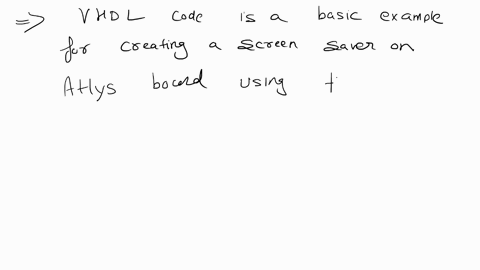 => VHDL code is a basic example
for creating a screen saver on
Atlys board using t